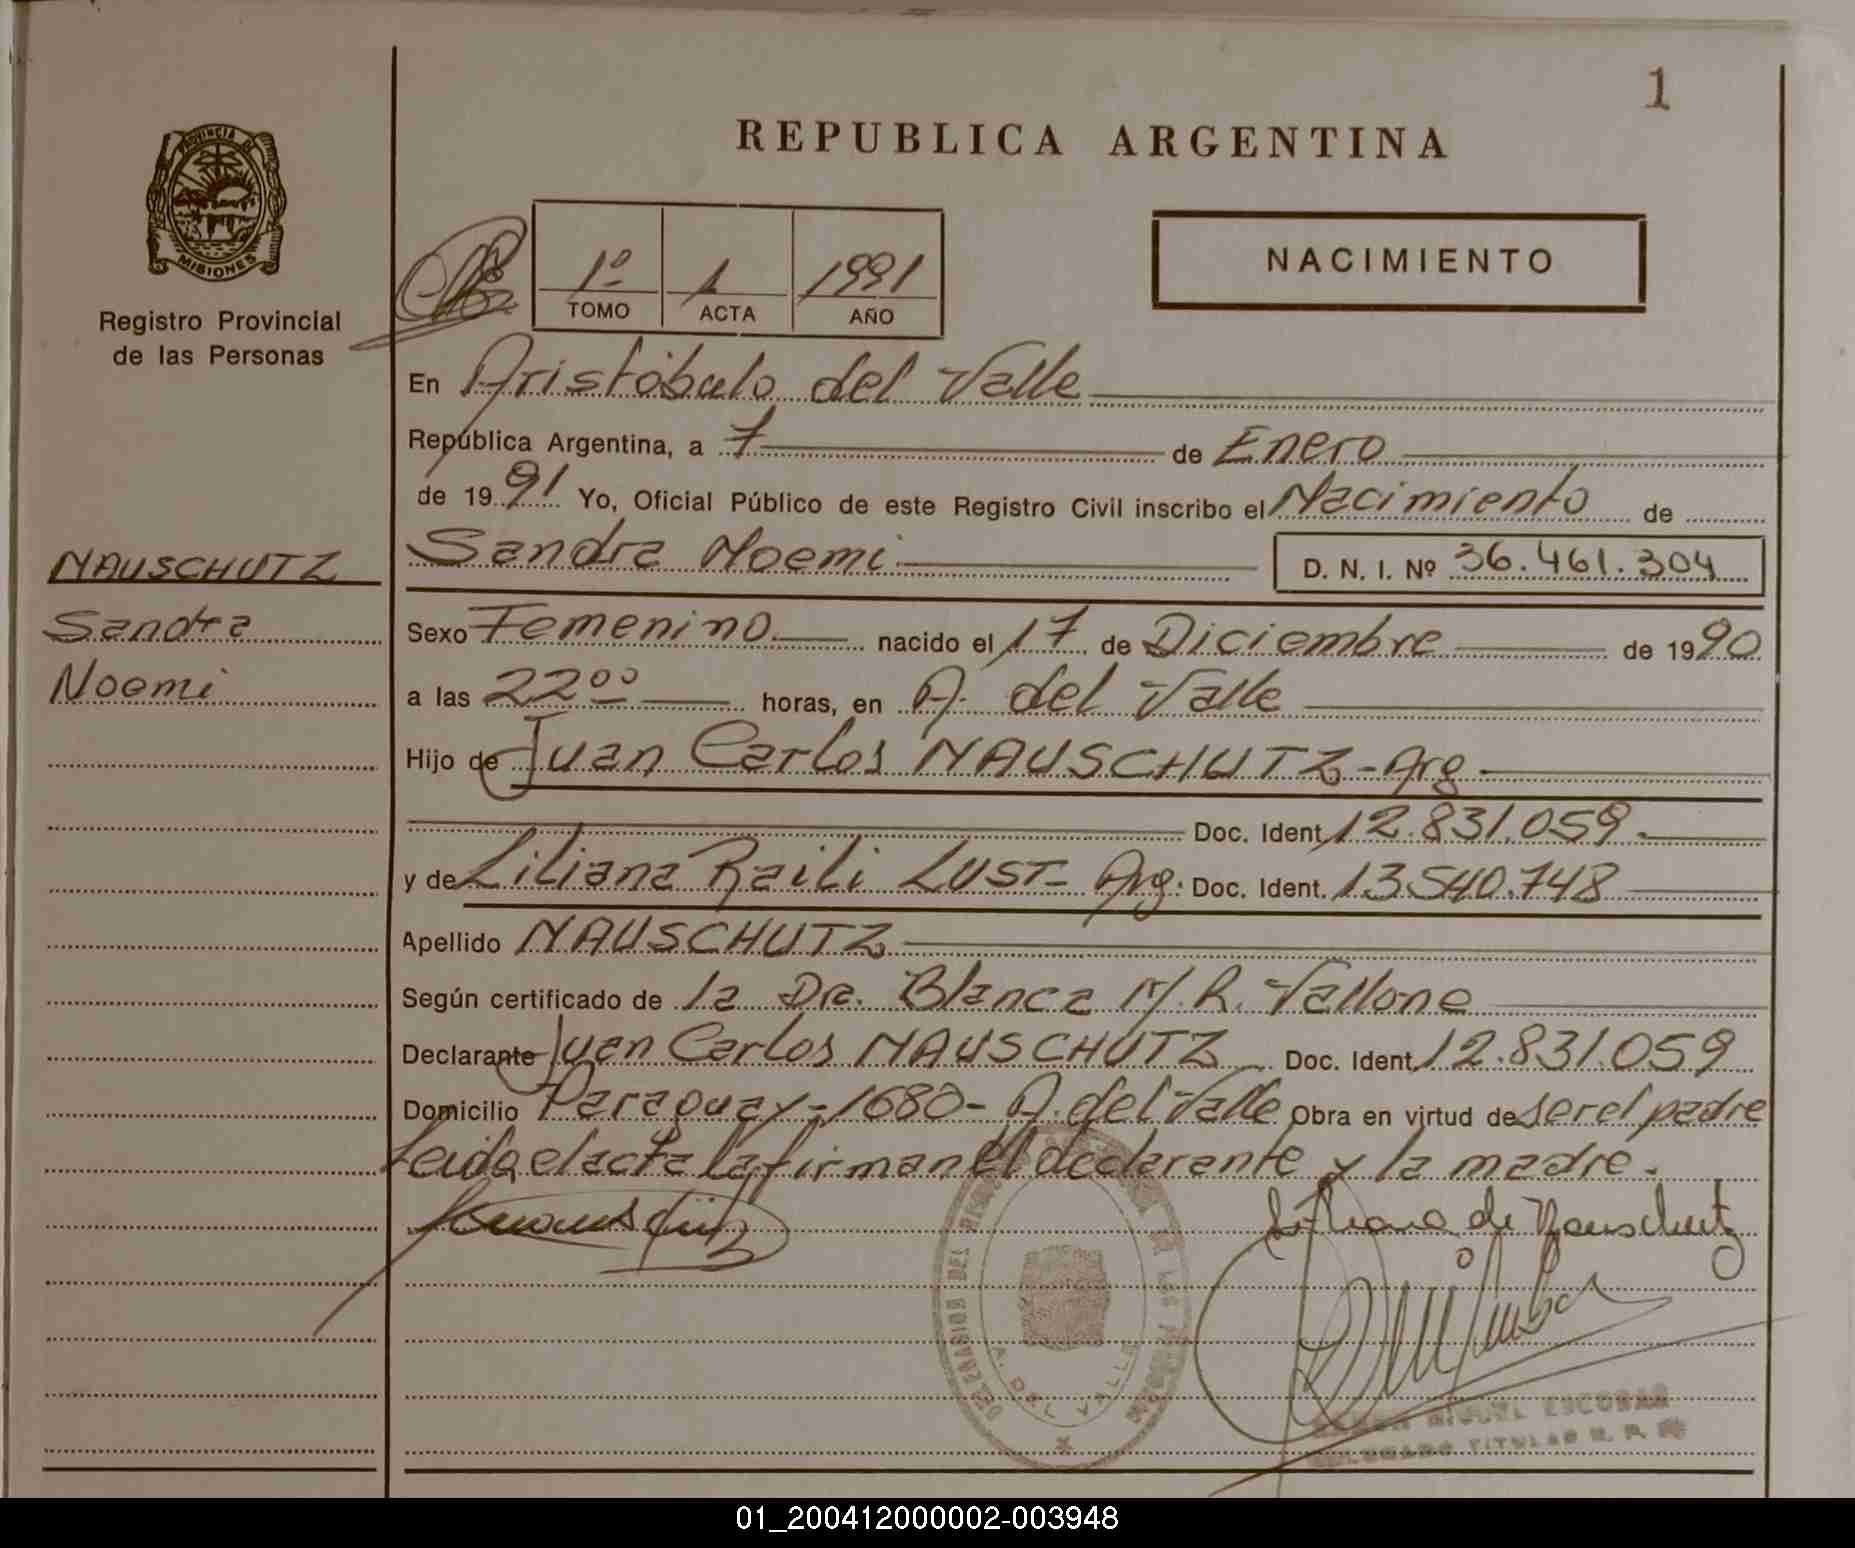 1
REPUBLICA ARGENTINA
PROVINCIA DE
MISIONES
Registro Provincial
de las Personas
1º 1 1991
TOMO ACTA AÑO
NACIMIENTO
En Aristóbulo del Valle
República Argentina, a 7 de Enero
de 1991 Yo, Oficial Público de este Registro Civil inscribo el Nacimiento de
NAUSCHUTZ
Sandra
Noemi
Sandra Noemi D. N. I. Nº 36.461.304
Sexo Femenino nacido el 17 de Diciembre de 1990
a las 22ºº horas, en A. del Valle
Hijo de Juan Carlos NAUSCHUTZ - Arg
Doc. Ident. 12.831.059.
y de Liliana Raili LUST - Arg. Doc. Ident. 13.540.748
Apellido NAUSCHUTZ
Según certificado de la Dra. Blanca M. R. Vallone
Declarante Juan Carlos NAUSCHUTZ Doc. Ident. 12.831.059
Domicilio Paraguay - 1680 - A. del Valle Obra en virtud de ser el padre
Leida el acta la firman el declarante y la madre.
Liliana de Nauschutz
A. DEL VALLE
MIGUEL ESCOBAR
TITULAR R. P.
01_200412000002-003948